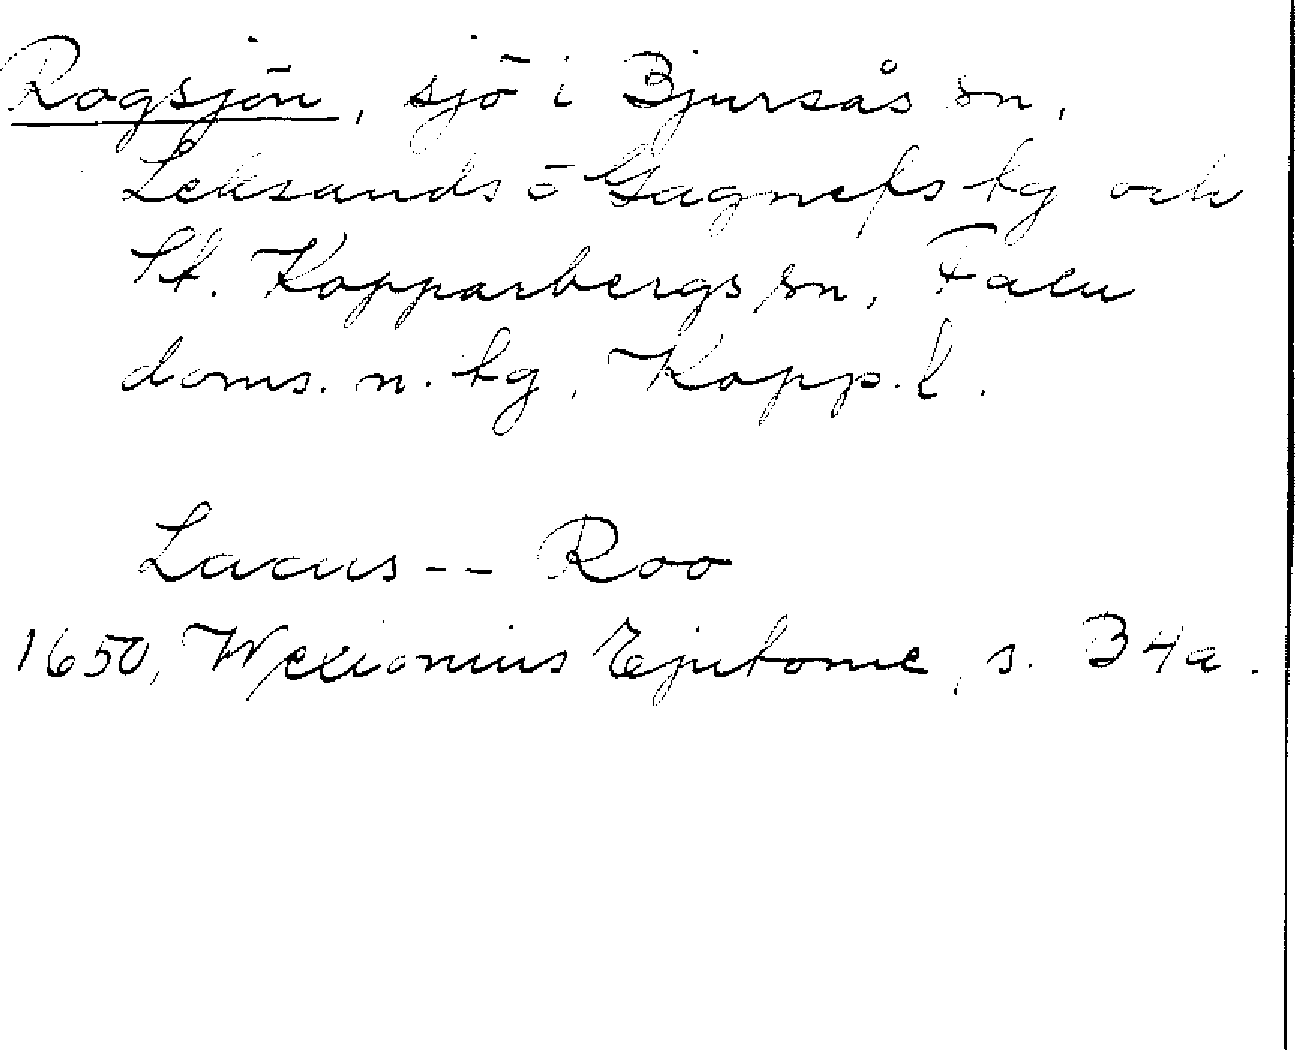 Rogsjön, sjö i Bjursås sn,
Leksands o Gagnefs tg och
St. Kopparbergs sn, Falu
doms. n. tg, Kopp. l.
Lacus -- Roo
1650, Wexionius Epitome, s. B4a.